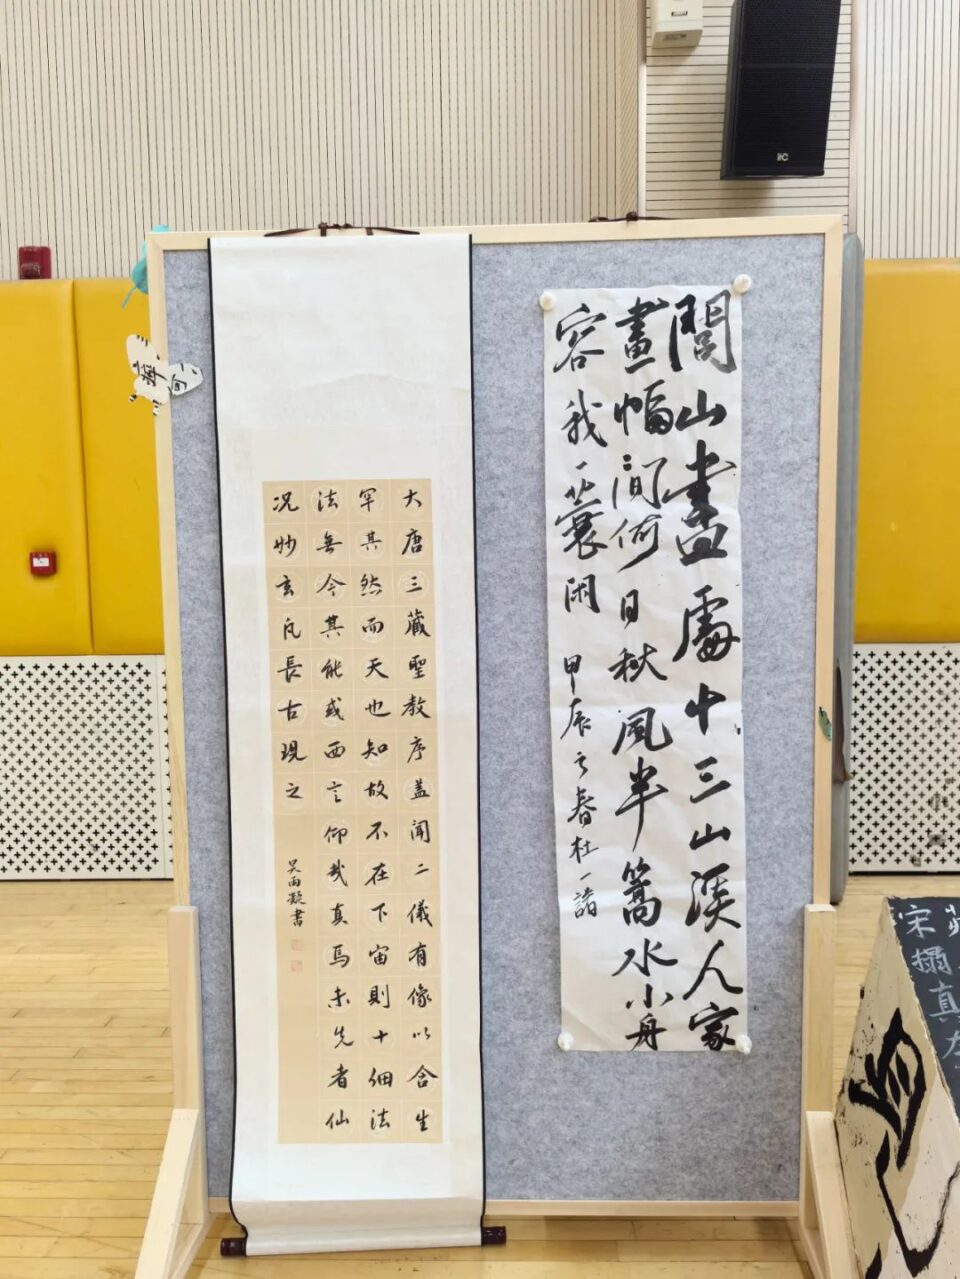 大唐三藏聖教序盖聞二儀有像以含生
罕其然而天也知故不在下宙則十佃法
法無今其能或西言仰哉真馬未先者仙
况妙玄凡長古現之
吴雨凝書
閭山盡處十三山溪人家
畫幅間何日秋風半篙水小舟
容我一蓑閑 甲辰之春杜一諸
宋搨真